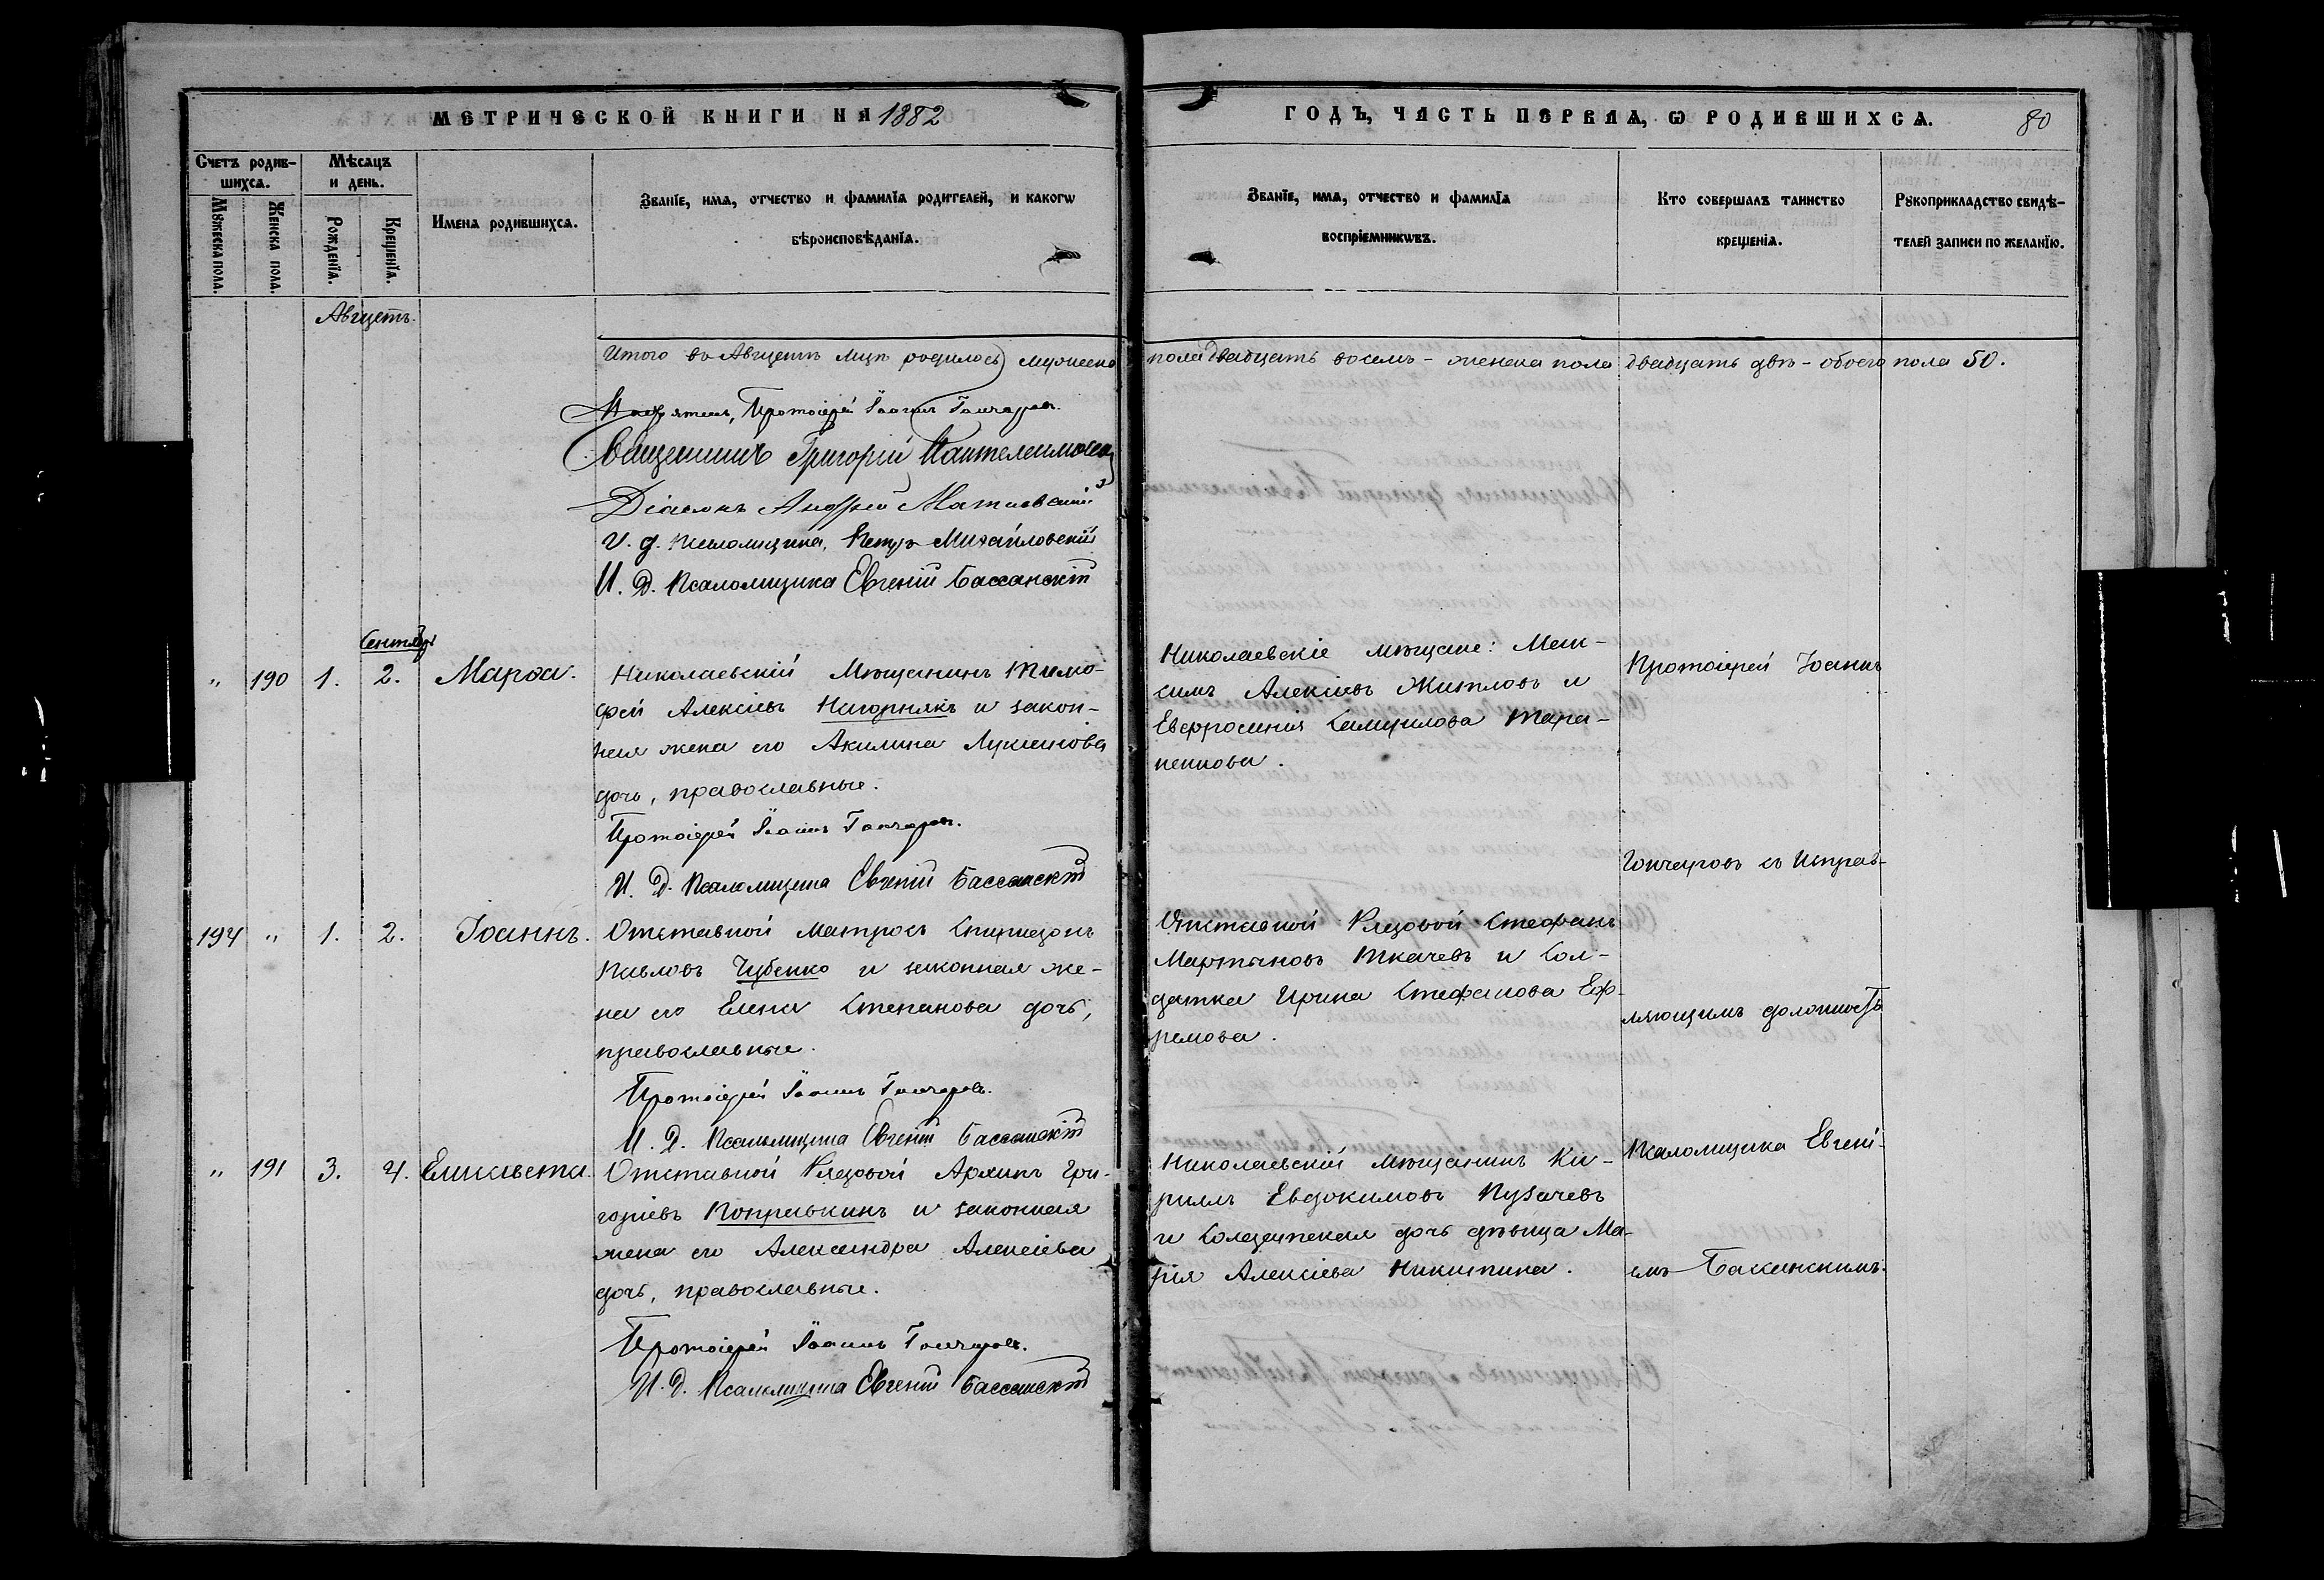 МЕТРИЧЕСКОЙ КНИГИ НА 1882
ГОДЪ, ЧАСТЬ ПЕРВАЯ, Ѡ РОДИВШИХСѦ. 80
Счетъ родив-
шихсѧ.
Мѣсѧцъ
и день.
Мꙋжеска пола.
Женска пола.
Рожденїѧ.
Крещенїѧ.
Имена родившихсѧ.
Званїе, имѧ, отчество и фамилїѧ родителей, и какогѡ
вѣроисповѣданїѧ.
Званїе, имѧ, отчество и фамилїѧ
воспрїемникѡвъ.
Кто совершалъ таинство
крещенїѧ.
Рꙋкоприкладство свидѣ-
телей записи по желанїю.
Августъ.
Итого въ Августѣ мцѣ родилось мужеска пола двадцать восемь - женска пола двадцать двѣ - обоего пола 50.
Протоіерей Іоаннъ Гончаровъ.
Священникъ Григорій
Діаконъ Андрей
И. д. Псаломщика, Петръ Михайловскій
И. Д. Псаломщика Евгеній Бассанскій
Сентябрь
" 190 1. 2. Марѳа.
Николаевскій Мѣщанинъ Тимо-
фей Алексіевъ Нагорнякъ и закон-
ная жена его Акилина Лукіанова
дочь, православные.
Протоіерей Іоаннъ Гончаровъ.
И. Д. Псаломщика Евгеній Бассанскій
Николаевскіе мѣщане: Мак-
симъ Алексіевъ Житловъ и
Евфросинія Самуилова Тара-
ненкова.
Протоіерей Іоаннъ
Гончаровъ съ Исправ-
194 " 1. 2. Іоаннъ.
Отставной Матросъ Спиридонъ
Павловъ Чубенко и законная же-
на его Елена Степанова дочь,
православные.
Протоіерей Іоаннъ Гончаровъ.
И. Д. Псаломщика Евгеній Бассанскій
Отставной Рядовой Стефанъ
Мартыновъ Ткачевъ и Сол-
датка Ирина Стефанова Еф-
ремова.
ляющимъ должность
" 191 3. 4. Елисавета.
Отставной Рядовой Архипъ Гри-
горіевъ Поправкинъ и законная
жена его Александра Алексіева
дочь, православные.
Протоіерей Іоаннъ Гончаровъ.
И. Д. Псаломщика Евгеній Бассанскій
Николаевскій Мѣщанинъ Ки-
риллъ Евдокимовъ Пузачевъ
и Солдатская дочь дѣвица Ма-
рія Алексіева Никитина.
Псаломщика Евгені-
емъ Басанскимъ.